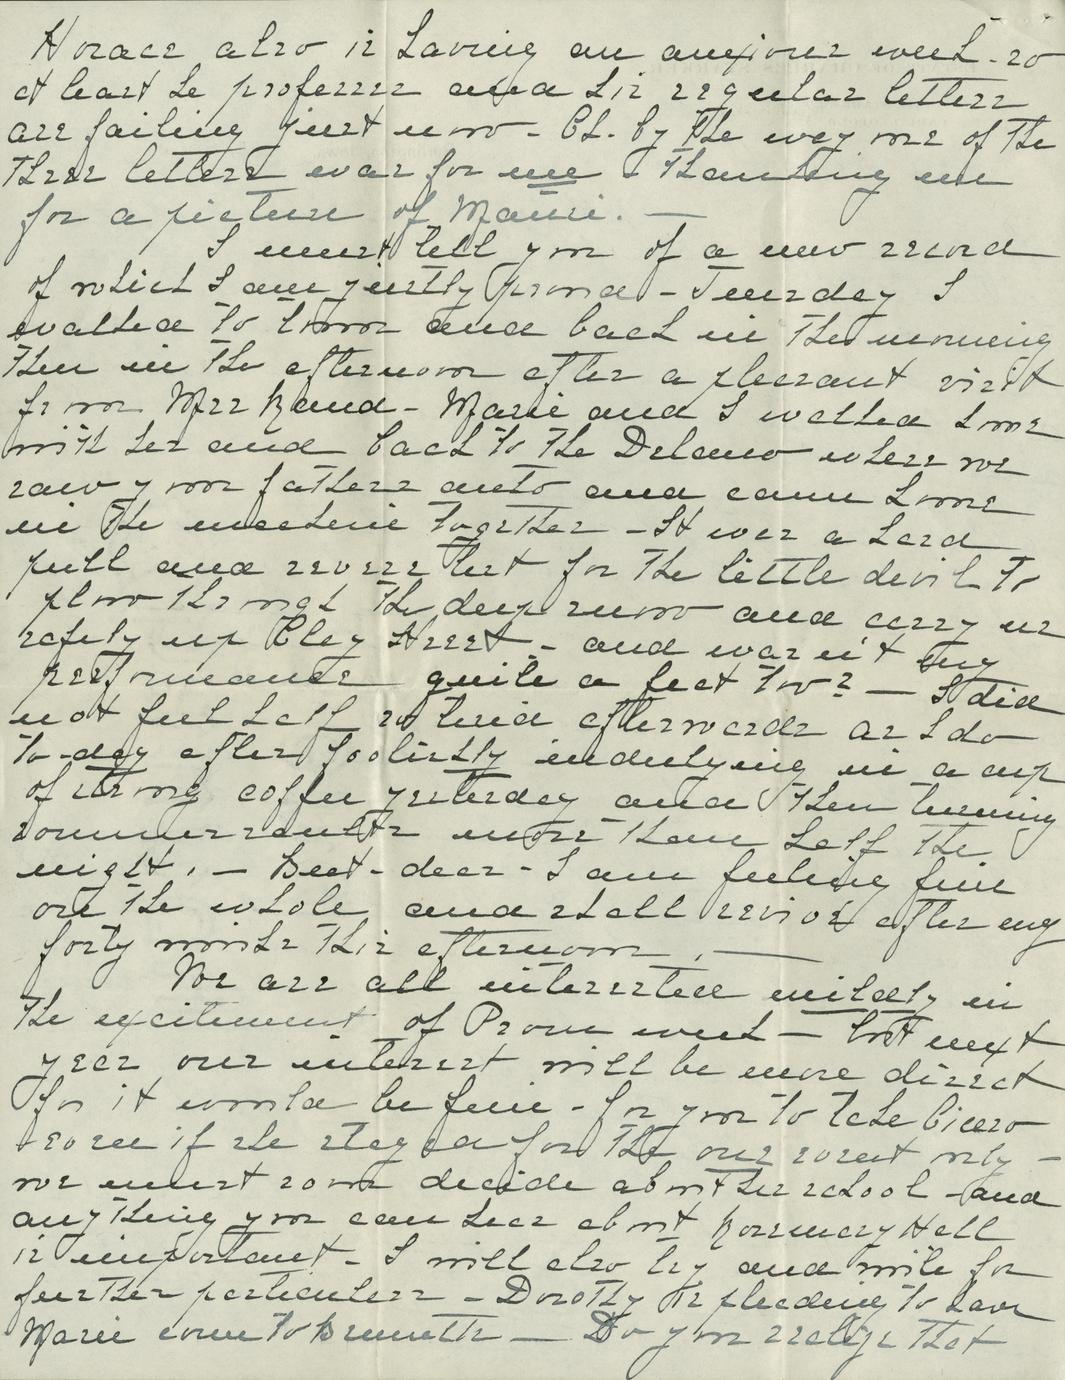 Horace also is having an anxious week - so
at least he professes and his regular letters
are failing just now - Oh. by the way one of the
three letters was for me - thanking me
for a picture of Mauri. —
I must tell you of a new record
of which I am justly proud - Tuesday I
walked to town and back in the morning
then in the afternoon after a pleasant visit
from Mrs Rand - Marie and I walked home
with her and back to the Delano where we
saw your fathers auto and came home
in the machine together - It was a hard
pull and reverse but for the little devil to
plow through the deep snow and carry us
safely up Clay Street - and wasn't my
performance quite a feat too? — I did
not feel half so tired afterwards as I do
to-day after foolishly indulging in a cup
of strong coffee yesterday and then turning
sommersaults more than half the
night. — But - dear - I am feeling fine
on the whole and shall revive after my
forty winks this afternoon. —
We are all interested mildly in
the excitement of Prom week — but next
year our interest will be more direct
for it would be fine - for you to take
even if she stayed for the one event only —
we must soon decide about her school - and
anything you can hear about Rosemary Hall
is important - I will also try and write for
further particulars - Dorothy is pleading to have
Marie come to Bennetts — Do you realize that